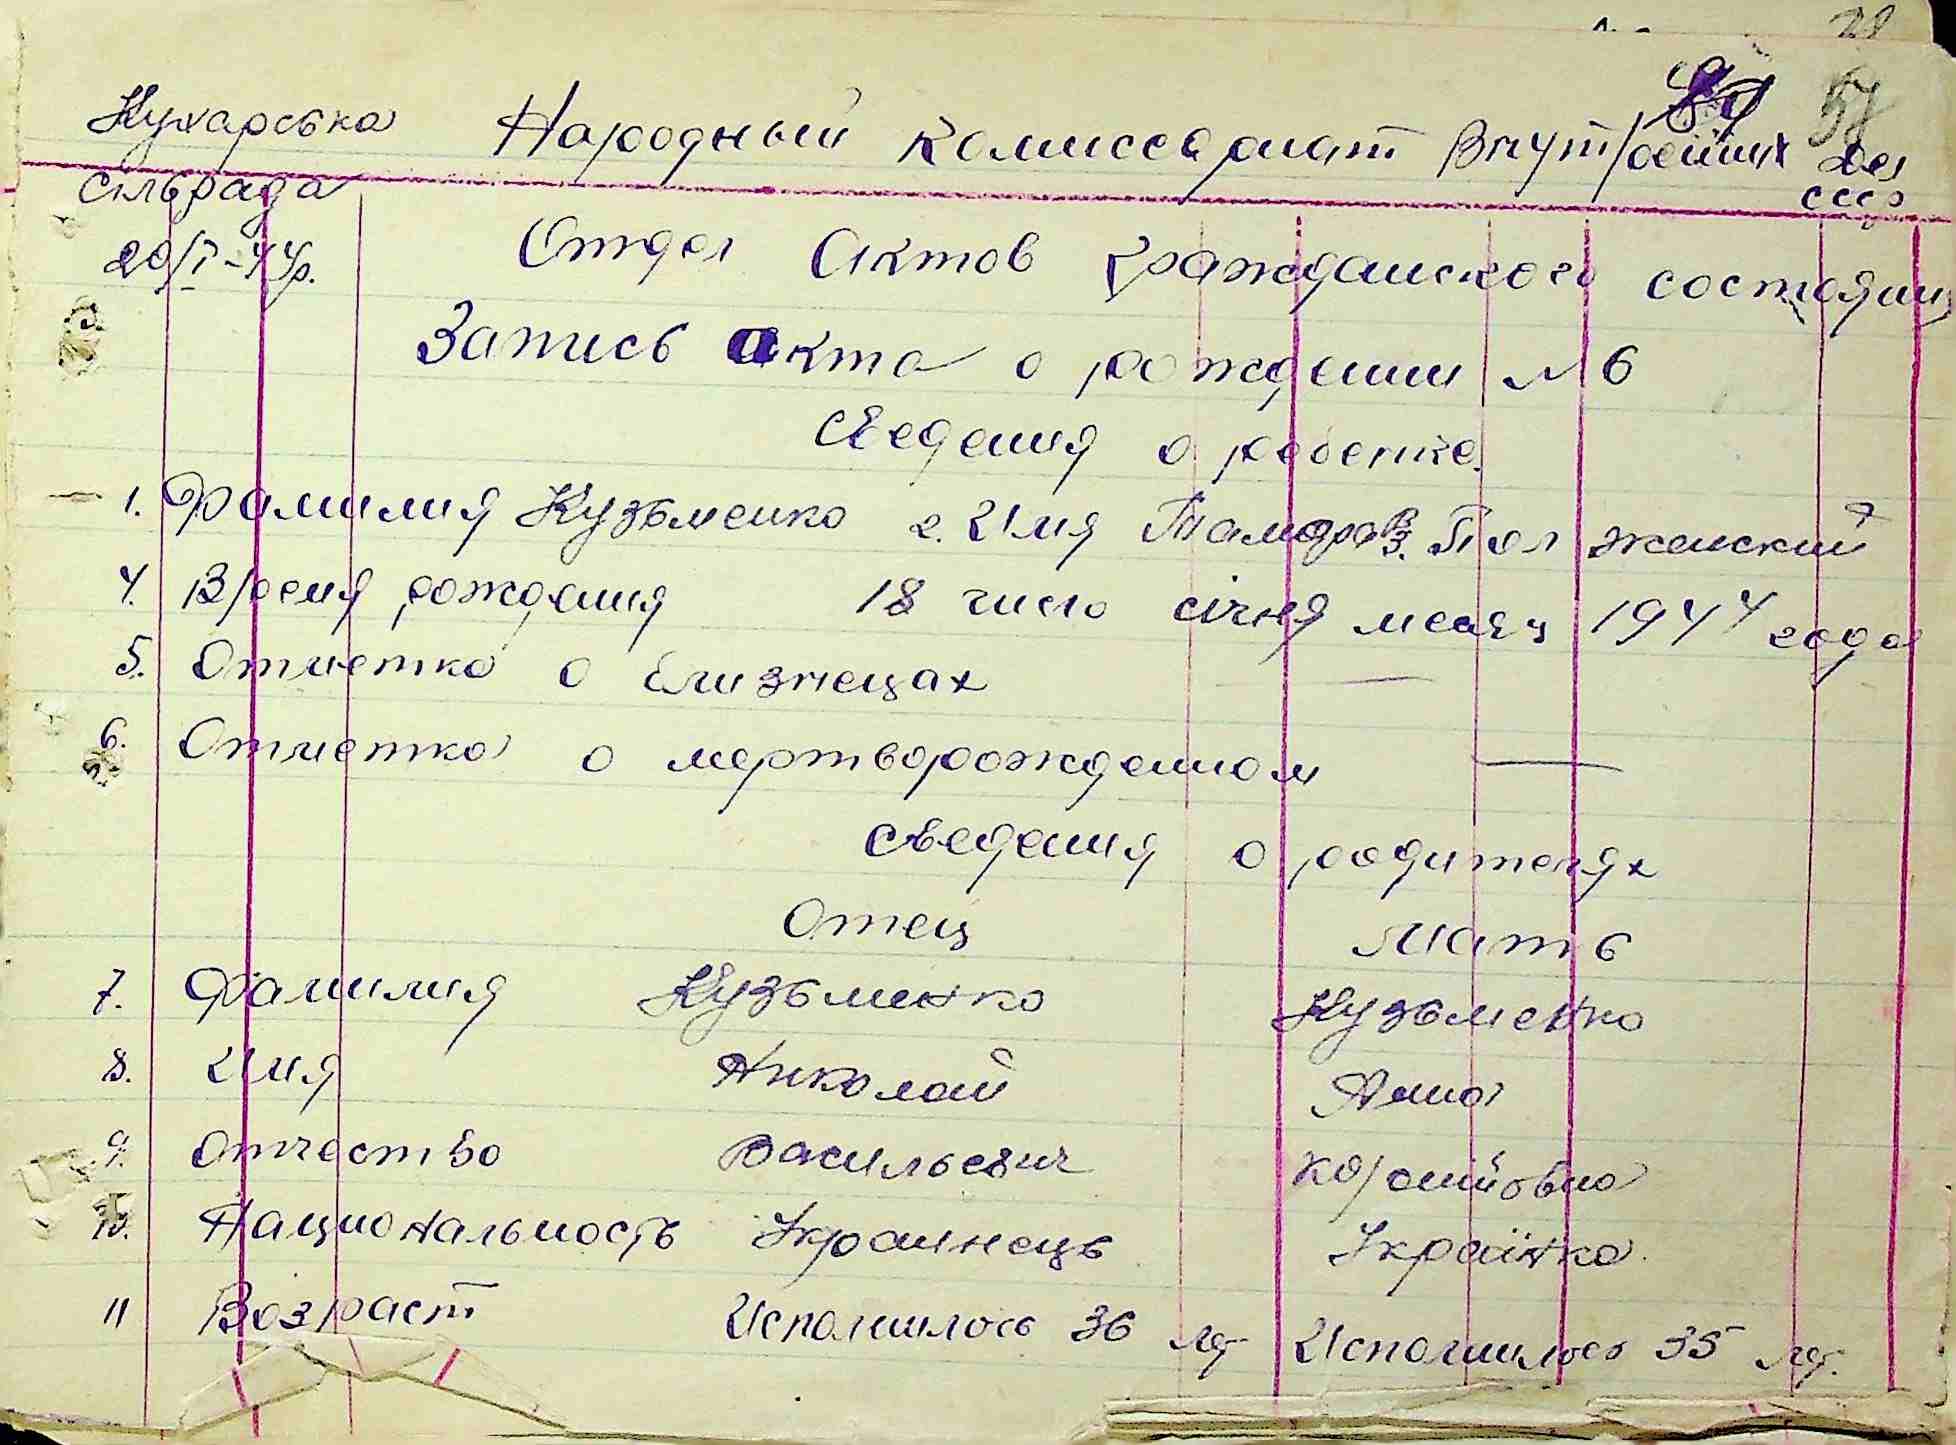 Кухарська Народный Комиссариат Внутренних Дел
сільрада СССР
20/I-44р. Отдел Актов Гражданского состояния
Запись акта о рождении №6
Сведения о ребенке.
1. Фамилия Кузьменко 2. Имя Тамара 3. Пол женский
4. Время рождения 18 число січня месяц 1944 года
5. Отметка о близнецах —
6. Отметка о мертворожденном —
Сведения о родителях
Отец Мать
7. Фамилия Кузьменко Кузьменко
8. Имя Николай Анна
9. Отчество Васильевич
10. Национальность Украинець Українка.
11 Возраст Исполнилось 36 лет Исполнилось 35 лет.